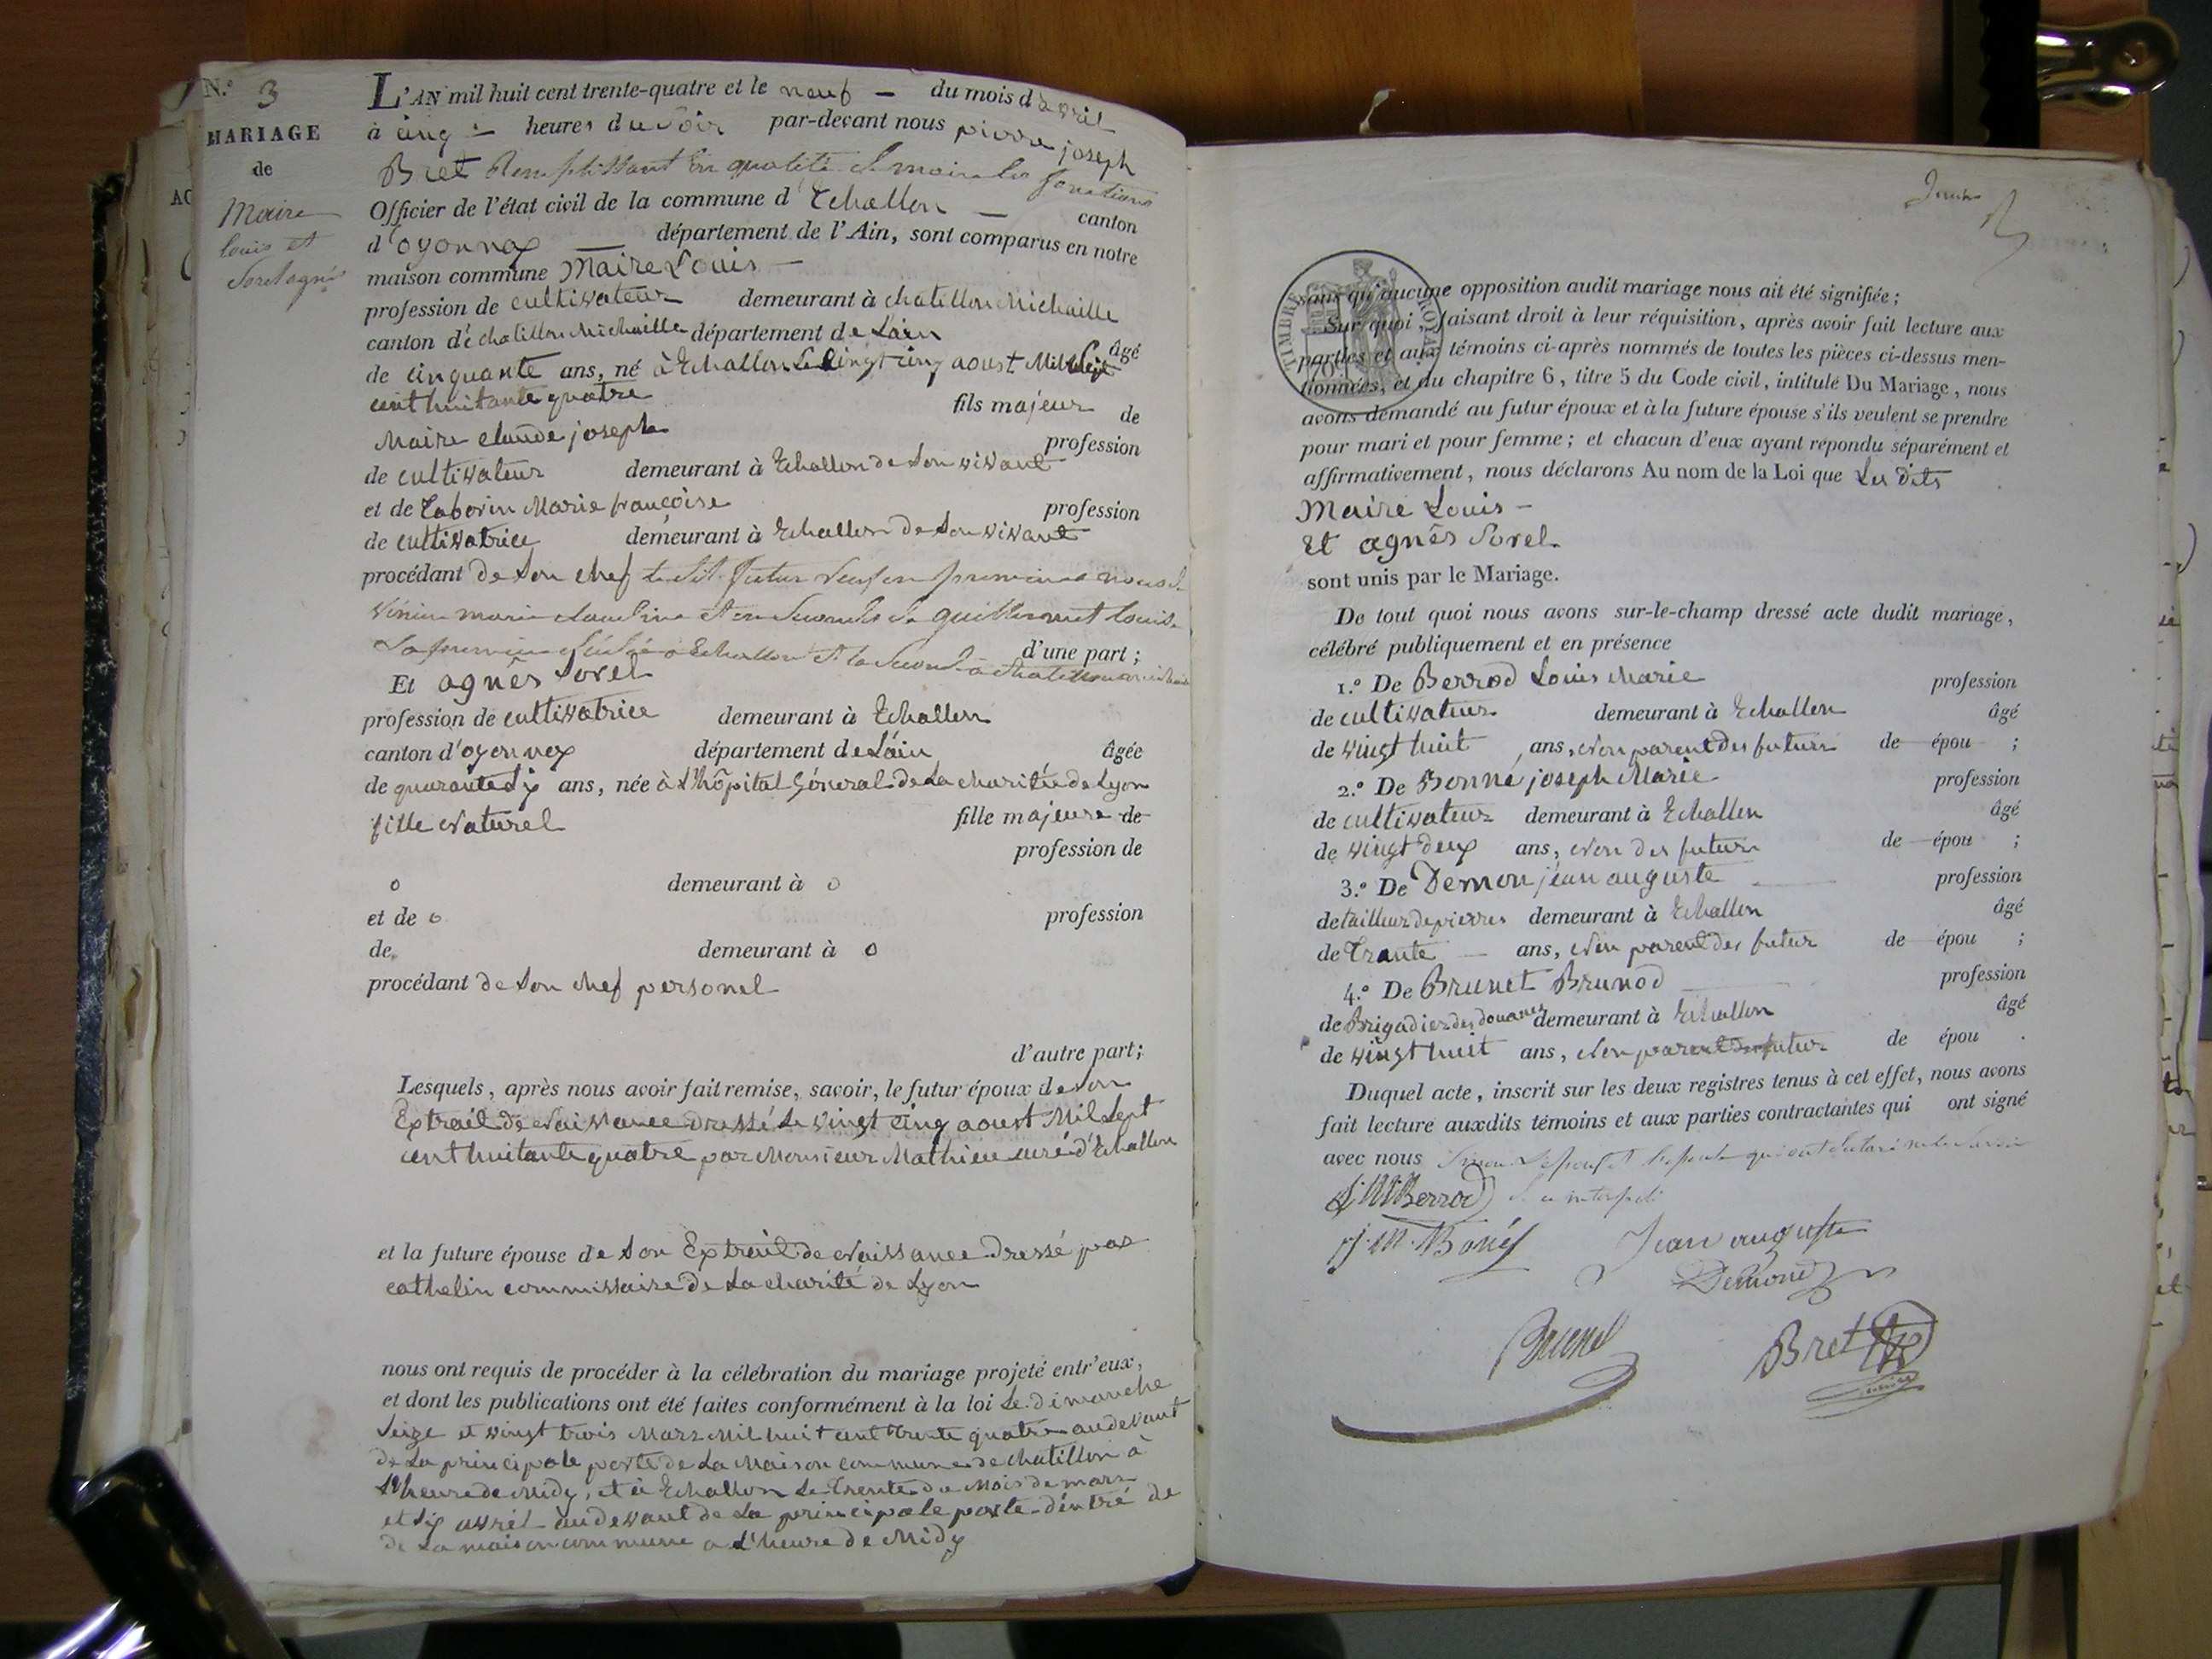 N.º 3
MARIAGE
de
Maire
louis et
Sorel agnès
L'AN mil huit cent trente-quatre et le neuf — du mois d'avril
à cinq — heures du soir par-devant nous pierre joseph
Bret Remplissant En qualité de maire les fonctions
Officier de l'état civil de la commune d'Echallon — canton
d'oyonnax — département de l'Ain, sont comparus en notre
maison commune Maire Louis —
profession de cultivateur demeurant à chatillon Michaille
canton de chatillon Michaille département de Lain
âgé
de cinquante ans, né à Echallon Le vingt cinq aoust Mil sept
cent huitante quatre fils majeur de
Maire claude joseph profession
de cultivateur demeurant à Echallon de son vivant
et de Taborin Marie françoise profession
de cultivatrice demeurant à Echallon de Son vivant
procédant de Son chef le dit futur veuf en première noces de
marie claudine et en secondes de guillermet louise
La première décédée à Echallon et la seconde à chatillon d'une part ;
Et agnès Sorel
profession de cultivatrice demeurant à Echallon
canton d'oyonnax département de Lain âgée
de quarante six ans, née à L'hôpital Géneral de La charitée de Lyon
fille Naturel fille majeure de
profession de
o demeurant à o
et de o profession
de demeurant à o
procédant de son chef personel
d'autre part;
Lesquels, après nous avoir fait remise, savoir, le futur époux de son
Extrait de Naissance dressé Le vingt cinq aoust Mil Sept
cent huitante quatre par Monsieur Mathieu curé d'Echallon
et la future épouse de son Extrait de Naissance Dressé par
cathelin commissaire de La charité de Lyon
nous ont requis de procéder à la célébration du mariage projeté entr'eux,
et dont les publications ont été faites conformément à la loi Le dimanche
Seize et vingt trois Mars Mil huit cent trente quatre au devant
de La principale porte de La Maison commune de chatillon à
l'heure de Midy, et à Echallon Le trente du Mois de mars
et six avril au devant de La principale porte d'entré de
de La maison commune a L'heure de Midy
TIMBRE ROYAL
70
sans qu'aucune opposition audit mariage nous ait été signifiée ;
Sur quoi, faisant droit à leur réquisition, après avoir fait lecture aux
parties et aux témoins ci-après nommés de toutes les pièces ci-dessus men-
tionnées, et du chapitre 6, titre 5 du Code civil, intitulé Du Mariage, nous
avons demandé au futur époux et à la future épouse s'ils veulent se prendre
pour mari et pour femme ; et chacun d'eux ayant répondu séparément et
affirmativement, nous déclarons Au nom de la Loi que Les dits
Maire Louis —
Et agnès Sorel
sont unis par le Mariage.
De tout quoi nous avons sur-le-champ dressé acte dudit mariage,
célébré publiquement et en présence
1.º De Berrod Louis Marie profession
de cultivateur demeurant à Echallon âgé
de vingt huit ans, Non parent des futurs de épou ;
2.º De Bonné joseph Marie profession
de cultivateur demeurant à Echallon âgé
de vingt deux ans, Non des futurs de épou ;
3.º De Demon jean auguste profession
de tailleur de pierres demeurant à Echallon âgé
de Trante — ans, Non parent des futur de épou ;
4.º De Brunet Brunod profession
de Brigadier des douanes demeurant à Echallon âgé
de vingt huit ans, Non parent des futur de épou .
Duquel acte, inscrit sur les deux registres tenus à cet effet, nous avons
fait lecture auxdits témoins et aux parties contractantes qui ont signé
avec nous sinon L'époux et L'épouse qui ont déclaré ne le savoir
de ce interpelé
L. M. Berrod
J. M. Boné
Jean auguste
Demond
Brunet
Bret